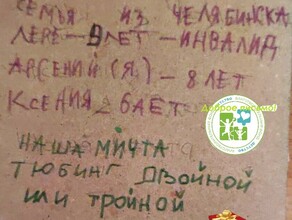 СЕМЬЯ ИЗ ЧЕЛЯБИНСКА
ЛЕРЕ – 9 ЛЕТ – ИНВАЛИД
АРСЕНИЙ (Я) – 8 ЛЕТ
КСЕНИЯ 2 6 ЛЕТ
НАША МИЧТА
ТЮБИНГ ДВОЙНОЙ
ИЛИ ТРОЙНОЙ